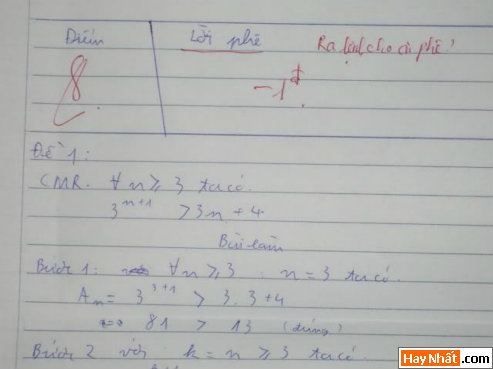 Điểm
Lời phê
Ra lệnh cho cô phê!
8
-1đ
Đề 1:
CMR. ∀n ≥ 3 ta có.
3^{n+1} > 3n + 4
Bài làm
Bước 1: ∀n ≥ 3 : n = 3 ta có.
A_n = 3^{3+1} > 3.3+4
⇔ 81 > 13 (đúng)
Bước 2 với k = n ≥ 3 ta có.
HayNhất.com